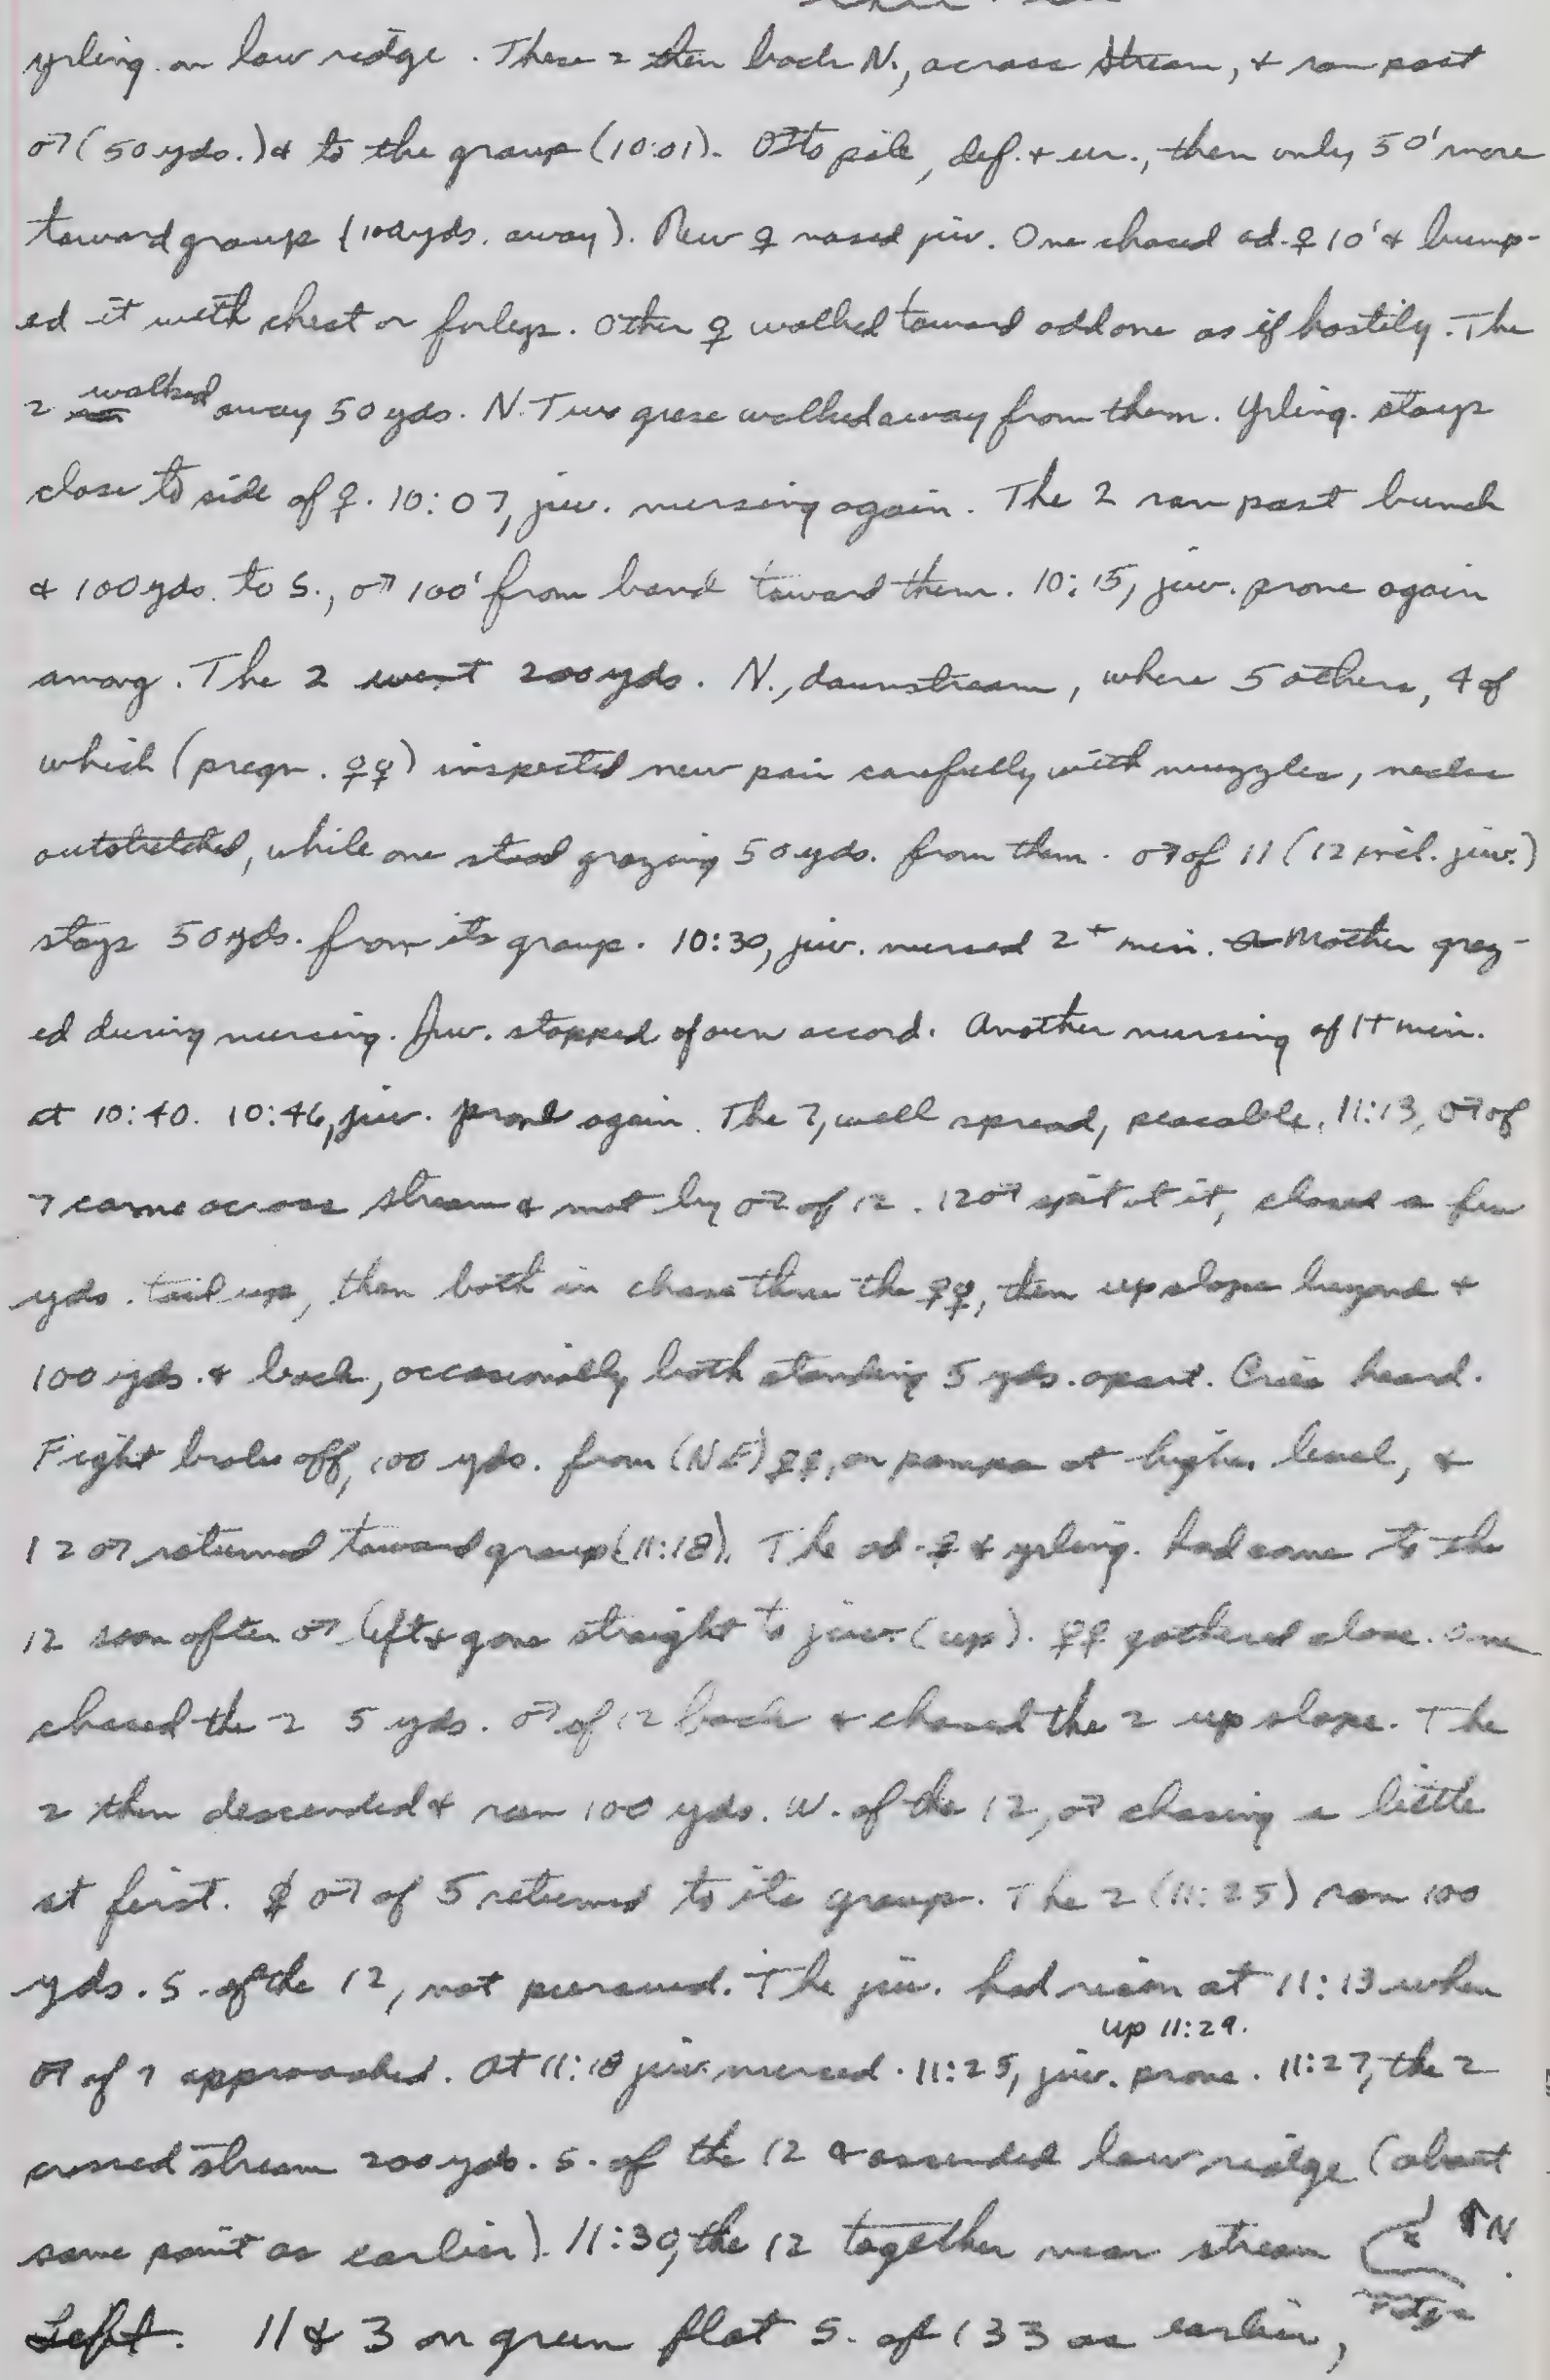 yrling. on low ridge. These 2 then back N., across stream, & ran past
♂ (50 yds.) & to the group (10:01). ♂ to pile, def. & ur., then only 50' more
toward group (100 yds. away). New ♀ nosed juv. One chased ad. ♀ 10' & bump-
ed it with chest or forlegs. Other ♀ walked toward odd one as if hostily. The
2 walked away 50 yds. N. Two geese walked away from them. Yrling. stays
close to side of ♀. 10:07, juv. nursing again. The 2 ran past bunch
& 100 yds. to S., ♂ 100' from band toward them. 10:15, juv. prone again
among. The 2 went 200 yds. N., downstream, where 5 others, 4 of
which (pregn. ♀♀) inspected new pair carefully with muzzles, necks
outstretched, while one stood grazing 50 yds. from them. ♂ of 11 (12 incl. juv.)
stays 50 yds. from its group. 10:30, juv. nursed 2+ min. Mother graz-
ed during nursing. Juv. stopped of own accord. Another nursing of 1+ min.
at 10:40. 10:46, juv. prone again. The 7, well spread, peacable. 11:13, ♂ of
7 came across stream & met by ♂ of 12. 12 ♂ spit at it, chased a few
yds. tail up, then both in chase thru the ♀♀, then up slope beyond &
100 yds. & back, occasionally both standing 5 yds. apart. Cries heard.
Fight broke off, 100 yds. from (NE) ♀♀, on pampa at higher level, &
12 ♂ returned toward group (11:18). The ad. ♀ & yrling. had come to the
12 soon after ♂ left & gone straight to juv. (up). ♀♀ gathered close. One
chased the 2 5 yds. ♂ of 12 back & chased the 2 up slope. The
2 then descended & ran 100 yds. W. of the 12, ♂ chasing a little
at first. ♂ of 5 returned to its group. The 2 (11:25) ran 100
yds. S. of the 12, not pursued. The juv. had risen at 11:13 when
up 11:29.
♂ of 7 approached. At 11:18 juv. nursed. 11:25, juv. prone. 11:27, the 2
crossed stream 200 yds. S. of the 12 & ascended low ridge (about
same point as earlier). 11:30, the 12 together near stream ↑N
ridge
Left. 11 & 3 on green flat S. of 133 as earlier,